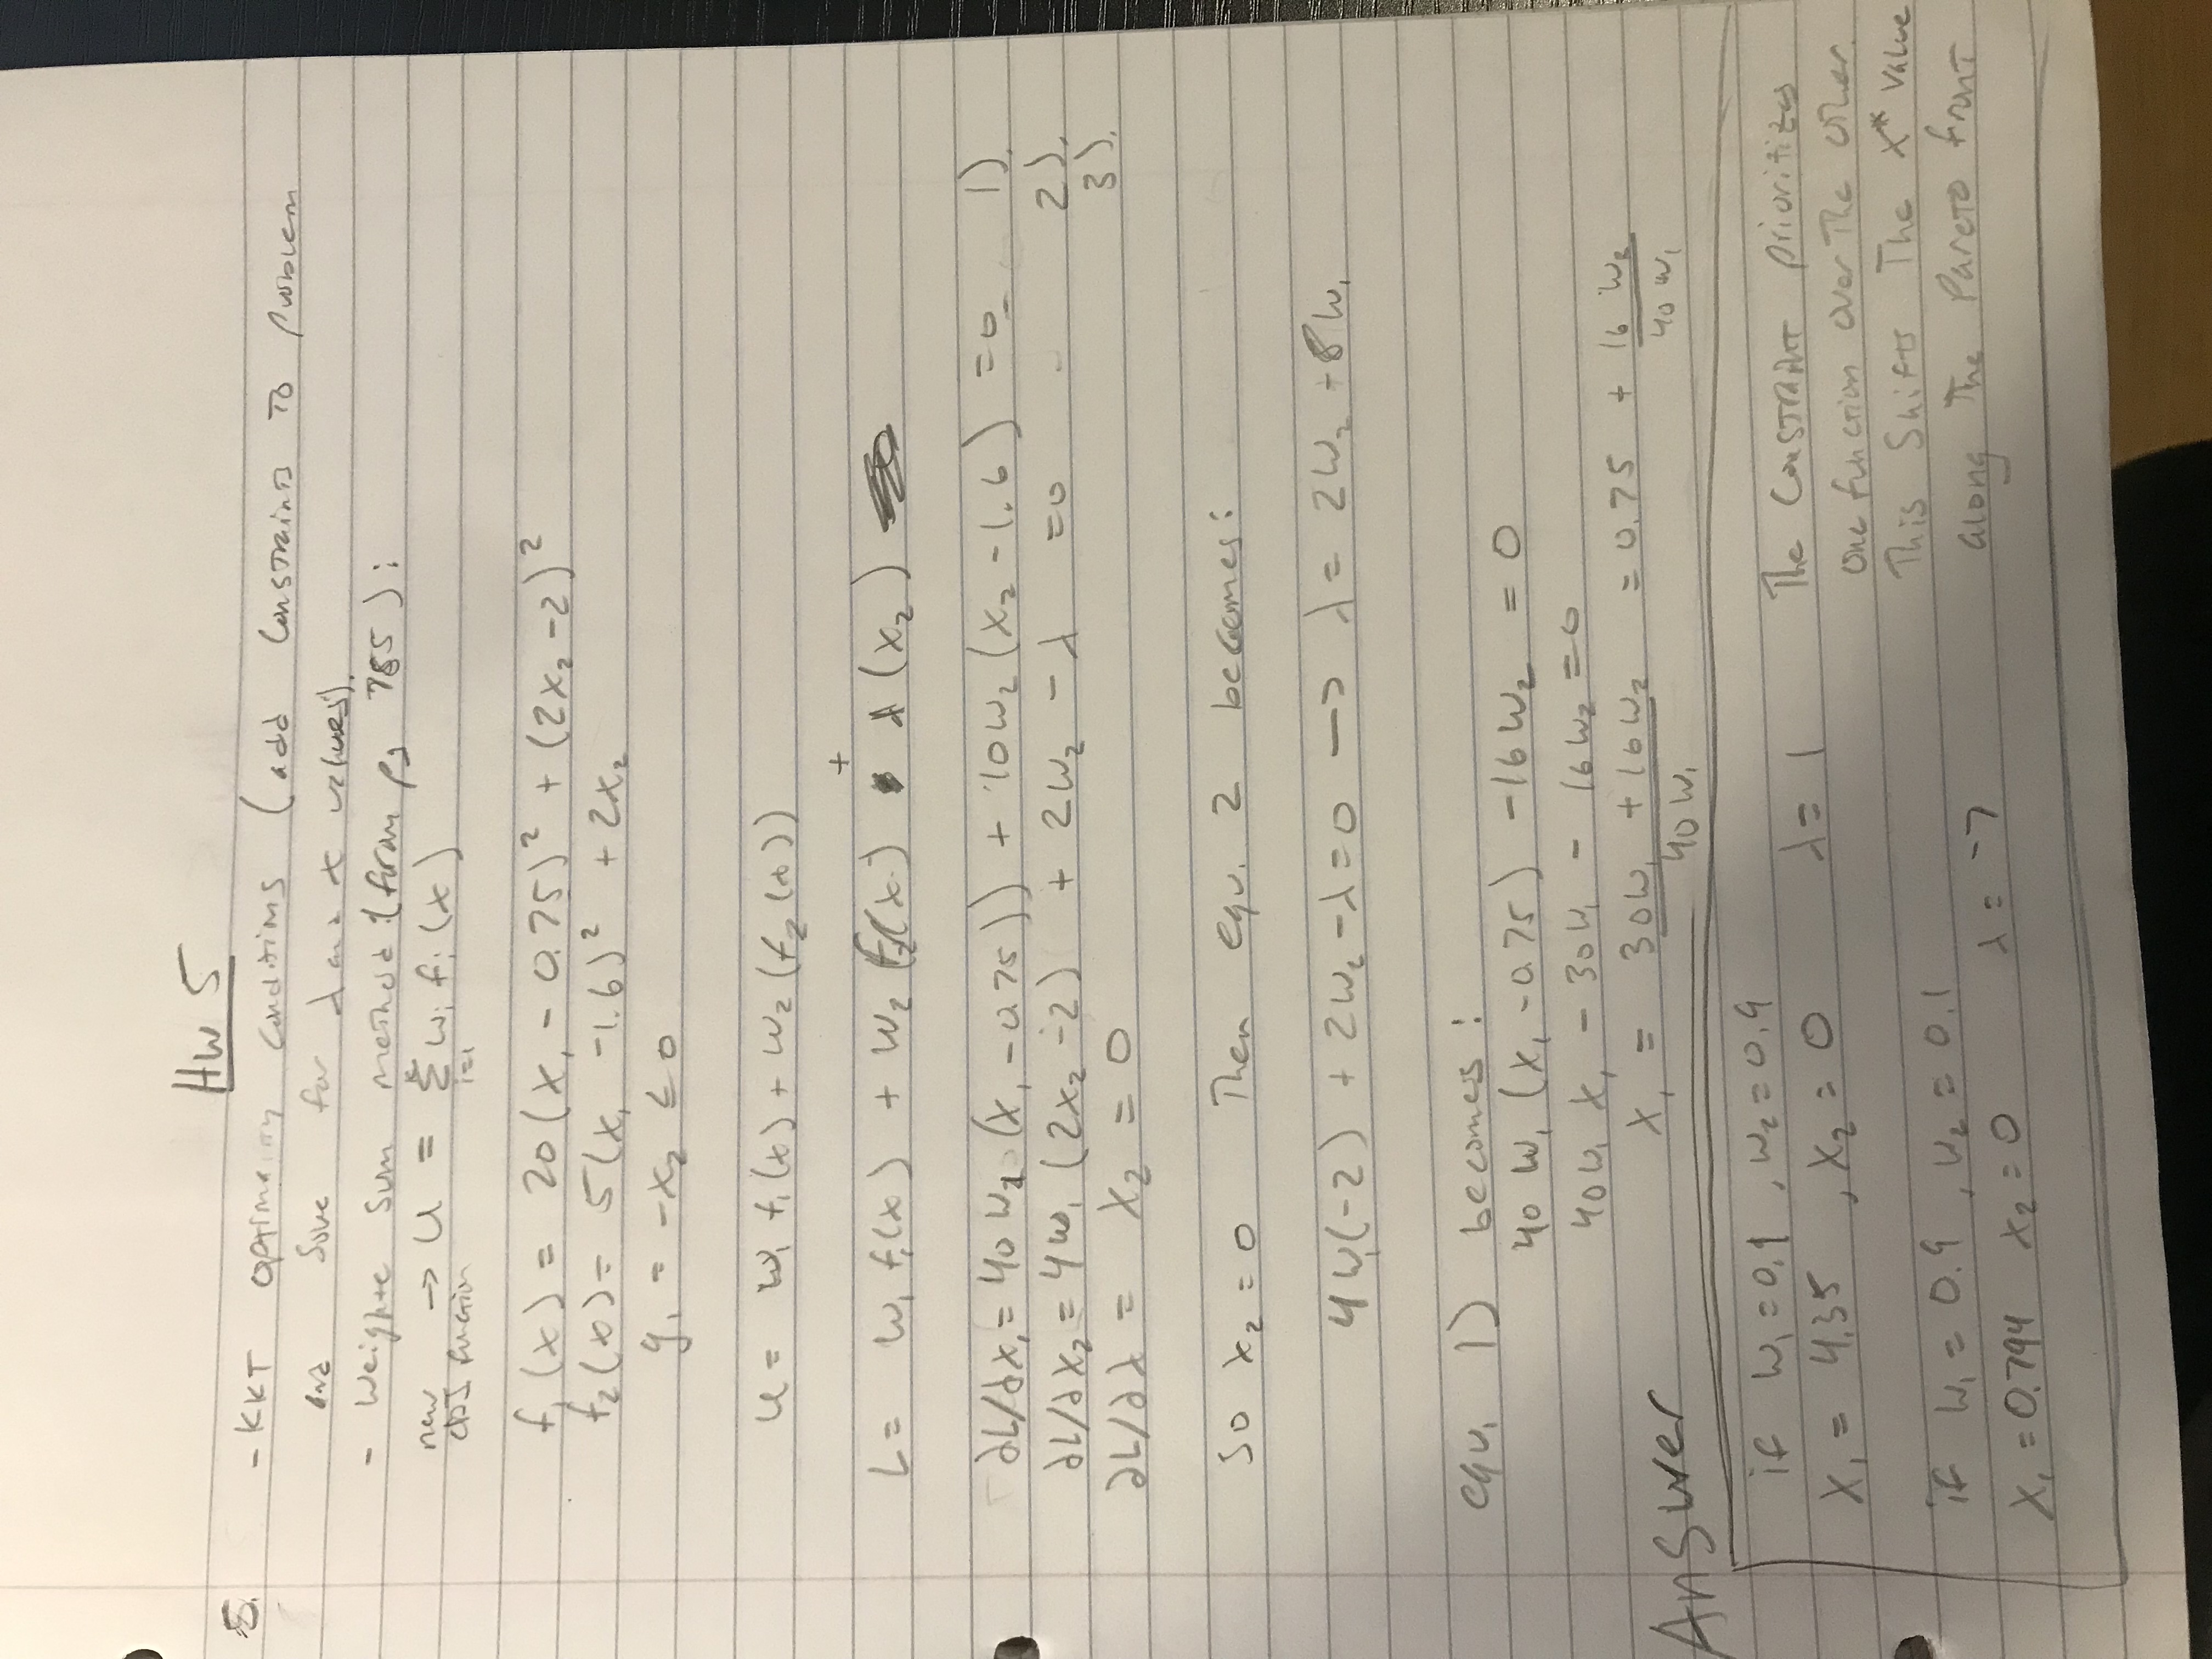 HW 5
5. - KKT optimality conditions (add constraints to problem
and solve for λ and x values).
- Weighte sum method (from pg 785):
new obj function → U = Σ i=1 wi fi (x)
f1 (x) = 20(x1 - 0.75)² + (2x2 - 2)²
f2 (x) = 5(x1 - 1.6)² + 2x2
g1 = -x2 ≤ 0
U = w1 f1(x) + w2 (f2(x))
L = w1 f1(x) + w2 (f2(x)) + λ (x2)
∂L/∂x1 = 40 w1 (x1 - 0.75)) + 10w2 (x2 - 1.6) = 0 1).
∂L/∂x2 = 4w1 (2x2 - 2) + 2w2 - λ = 0 2).
∂L/∂λ = x2 = 0 3).
So x2 = 0 Then equ. 2 becomes:
4w1(-2) + 2w2 - λ = 0 → λ = 2w2 + 8w1
equ. 1) becomes:
40 w1 (x1 - 0.75) - 16w2 = 0
40w1 x1 - 30w1 - 16w2 = 0
x1 = 30w1 + 16w2 / 40w1 = 0.75 + 16 w2 / 40 w1
Answer
if w1 = 0.1, w2 = 0.9
x1 = 4.35, x2 = 0 λ = 1
if w1 = 0.9, w2 = 0.1
x1 = 0.794 x2 = 0 λ = -7
The constraint prioritizes
one function over the other.
This shifts the x* value
along the pareto front